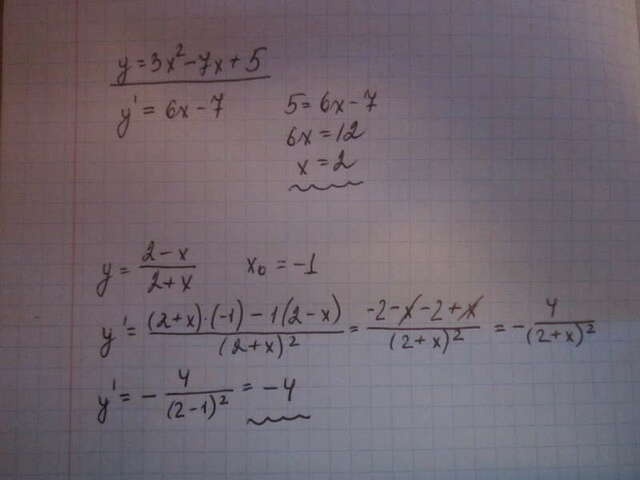 y = 3x² - 7x + 5
y' = 6x - 7
5 = 6x - 7
6x = 12
x = 2
y = (2 - x)/(2 + x)    x₀ = -1
y' = ((2 + x)·(-1) - 1(2 - x))/(2 + x)² = (-2 - x - 2 + x)/(2 + x)² = - 4/(2 + x)²
y' = - 4/(2 - 1)² = -4